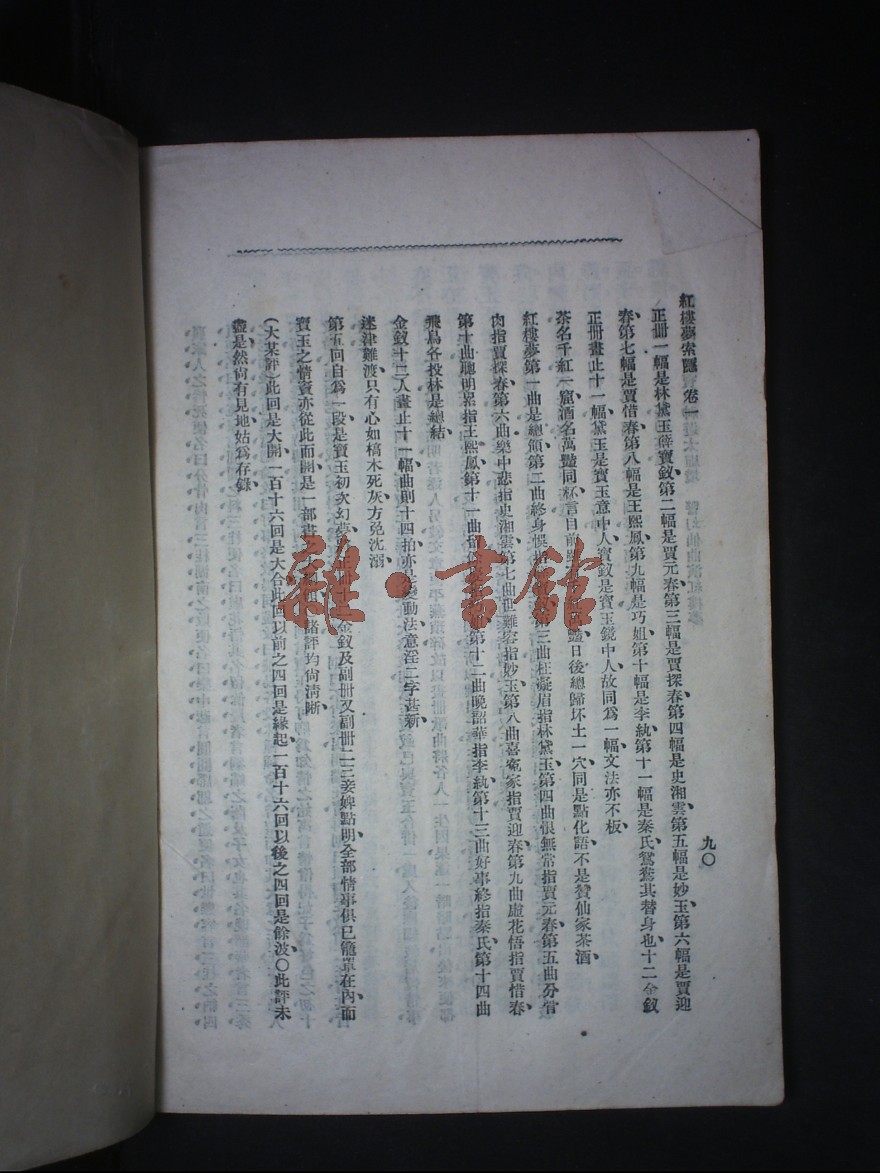 紅樓夢索隱 卷一
九〇
正冊一幅是林黛玉薛寶釵第二幅是賈元春第三幅是賈探春第四幅是史湘雲第五幅是妙玉第六幅是賈迎
春第七幅是賈惜春第八幅是王熙鳳第九幅是巧姐第十幅是李紈第十一幅是秦氏鴛鴦其替身也十二金釵
正冊畫止十一幅黛玉是寶玉意中人寶釵是寶玉鏡中人故同爲一幅文法亦不板
茶名千紅一窟酒名萬艷同杯言目前 艷日後總歸坏土一穴同是點化語不是贊仙家茶酒
紅樓夢第一曲是總領第二曲終身悞指 第三曲枉凝眉指林黛玉第四曲恨無常指賈元春第五曲分骨
肉指賈探春第六曲樂中悲指史湘雲第七曲世難容指妙玉第八曲喜寃家指賈迎春第九曲虛花悟指賈惜春
第十曲聰明累指王熙鳳第十一曲留 第十二曲晚韶華指李紈第十三曲好事終指秦氏第十四曲
飛鳥各投林是總結
金釵十二人畫止十一幅曲則十四拍亦是變動法意淫二字甚新
迷津難渡只有心如槁木死灰方免沈溺
第五回自爲一段是寶玉初次幻夢 金釵及副冊又副冊二三妾婢點明全部情事俱已籠罩在內而
寶玉之情竇亦從此而開是一部書之大 諸評均尙清晰
(大某評)此回是大開一百十六回是大合此回以前之四回是緣起一百十六回以後之四回是餘波〇此評未
盡是然尙有見地姑爲存錄
雜·書館